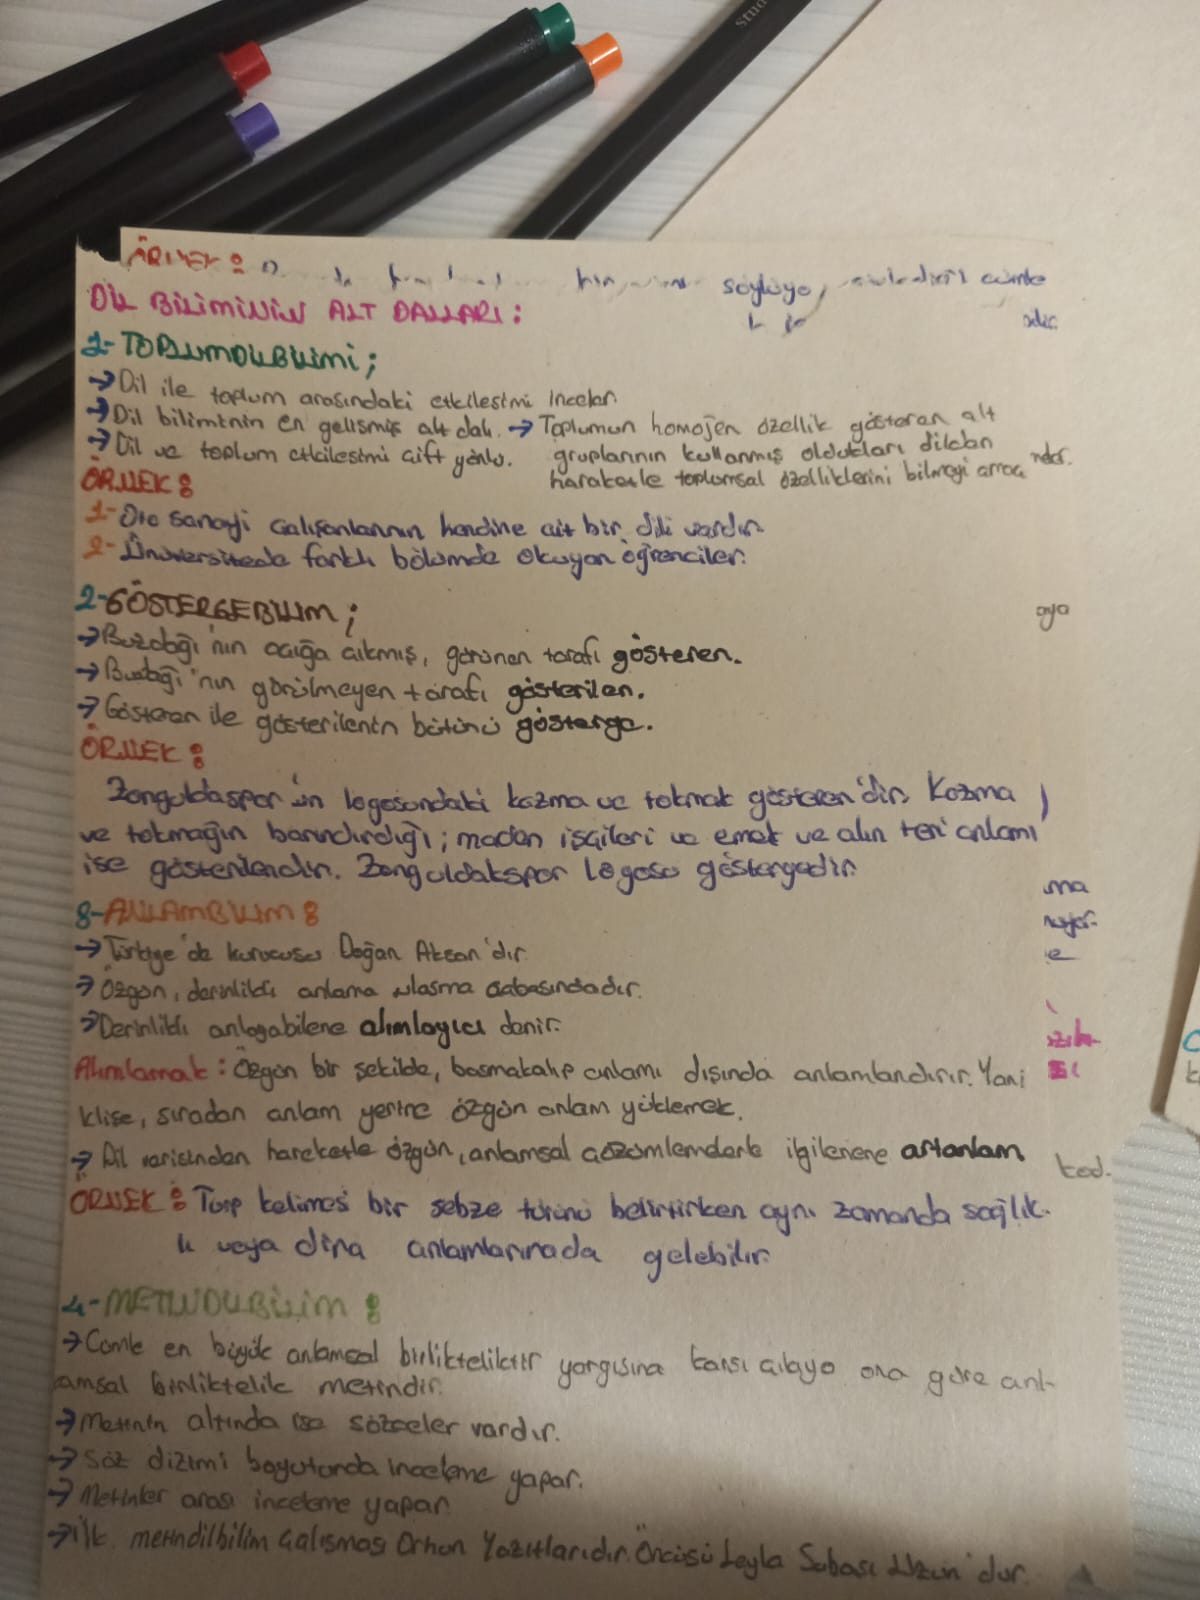 Stud
ÖRNEK: söylüyo, cümle
DİL BİLİMİNİN ALT DALLARI:
1-TOPLUMDİLBİLİMİ;
→Dil ile toplum arasındaki etkilesimi inceler.
→Dil biliminin en gelismiş alt dalı. →Toplumun homojen özellik gösteren alt
→Dil ve toplum etkilesimi çift yönlü. gruplarının kullanmış oldukları dilden
hareketle toplumsal özelliklerini bilmeyi amaç
ÖRNEK:
1-Oto sanayi calışanlarının kendine ait bir dili vardır.
2-Üniversitede farklı bölümde okuyan öğrenciler.
2-GÖSTERGEBİLİM;
aya
→Buzdağı'nın açığa çıkmış, görünen tarafı gösteren.
→Buzdağı'nın görülmeyen tarafı gösterilen.
→Gösteren ile gösterilenin bütünü gösterge.
ÖRNEK:
Zonguldaspor'un logosundaki kazma ve tokmak gösteren'dir. Kazma
ve tokmağın barındırdığı; maden işçileri ve emek ve alın teri anlamı
ise gösterilendir. Zonguldakspor logosu göstergedir.
ma
3-ANLAMBİLİM:
→Türkiye'de kurucusu Doğan Aksan'dır.
e
→Özgün, derinlikli anlama ulaşma çabasındadır.
→Derinlikli anlayabilene alımlayıcı denir.
Alımlamak: Özgün bir şekilde, basmakalıp anlamı dışında anlamlandırır. Yani
klişe, sıradan anlam yerine özgün anlam yüklemek.
→Dil varisinden hareketle özgün, anlamsal çözümlemelerle ilgilenene artanlam
kod.
ÖRNEK: Turp kelimesi bir sebze türünü belirtirken aynı zamanda sağlık-
lı veya dinç anlamlarınada gelebilir.
4-METİNDİLBİLİM:
→Cümle en büyük anlamsal birlikteliktir yargısına karsı çıkıyo ona göre anl-
amsal birliktelik metindir.
→Metnin altında ise sözceler vardır.
→Söz dizimi boyutunda inceleme yapar.
→Metinler arası inceleme yapar.
→İlk metindilbilim Çalısması Orhun Yazıtlarıdır. Öncüsü Leyla Subaşı Uzun'dur.